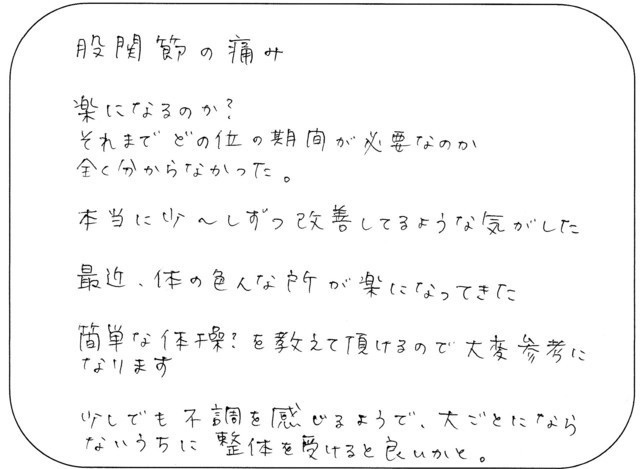 股関節の痛み
楽になるのか?
それまでどの位の期間が必要なのか
全く分からなかった。
本当に少〜しずつ改善してるような気がした
最近、体の色んな所が楽になってきた
簡単な体操?を教えて頂けるので大変参考に
なります
少しでも不調を感じるようで、大ごとになら
ないうちに整体を受けると良いかと。